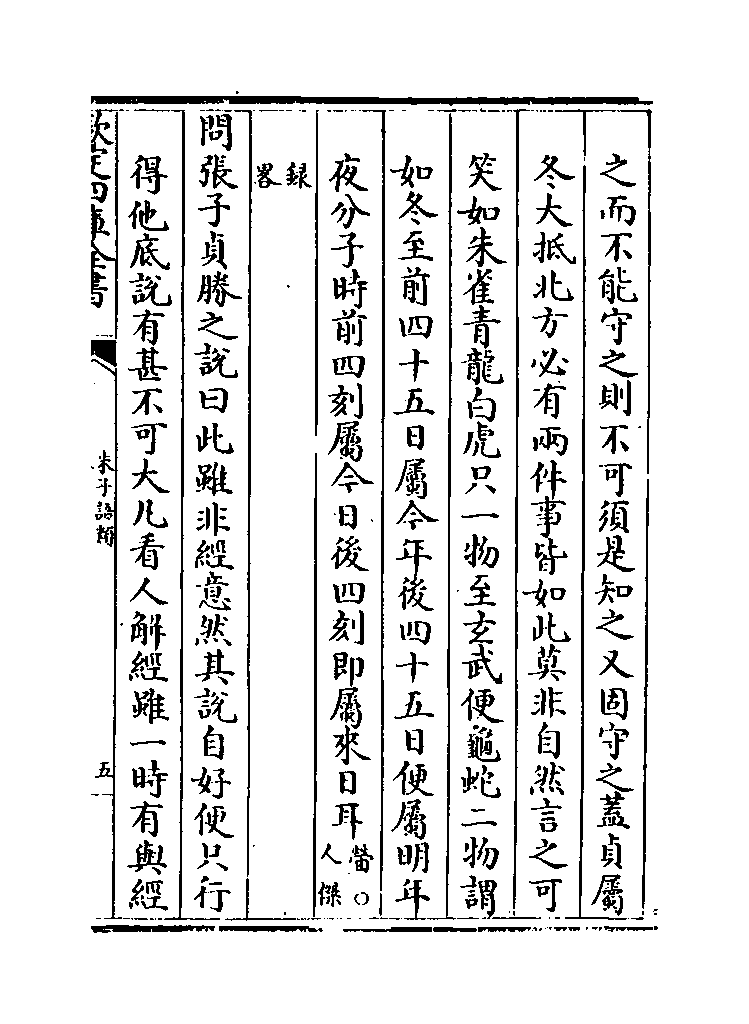 之而不能守之則不可須是知之又固守之蓋貞屬
冬大抵北方必有兩件事皆如此莫非自然言之可
笑如朱雀青龍白虎只一物至玄武便龜蛇二物謂
如冬至前四十五日屬今年後四十五日便屬明年
夜分子時前四刻屬今日後四刻即屬來日耳㽦○人傑
録畧
問張子貞勝之說曰此雖非經意然其說自好便只行
得他底說有甚不可大凡看人解經雖一時有與經
欽定四庫全書
朱子語類
五